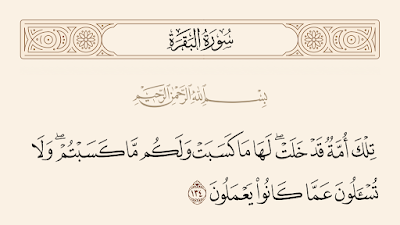 سُورَةُ البَقَرَةِ
بِسْمِ اللَّهِ الرَّحْمَٰنِ الرَّحِيمِ
تِلْكَ أُمَّةٌ قَدْ خَلَتْ ۖ لَهَا مَا كَسَبَتْ وَلَكُم مَّا كَسَبْتُمْ ۖ وَلَا
تُسْـَٔلُونَ عَمَّا كَانُوا۟ يَعْمَلُونَ ١٣٤